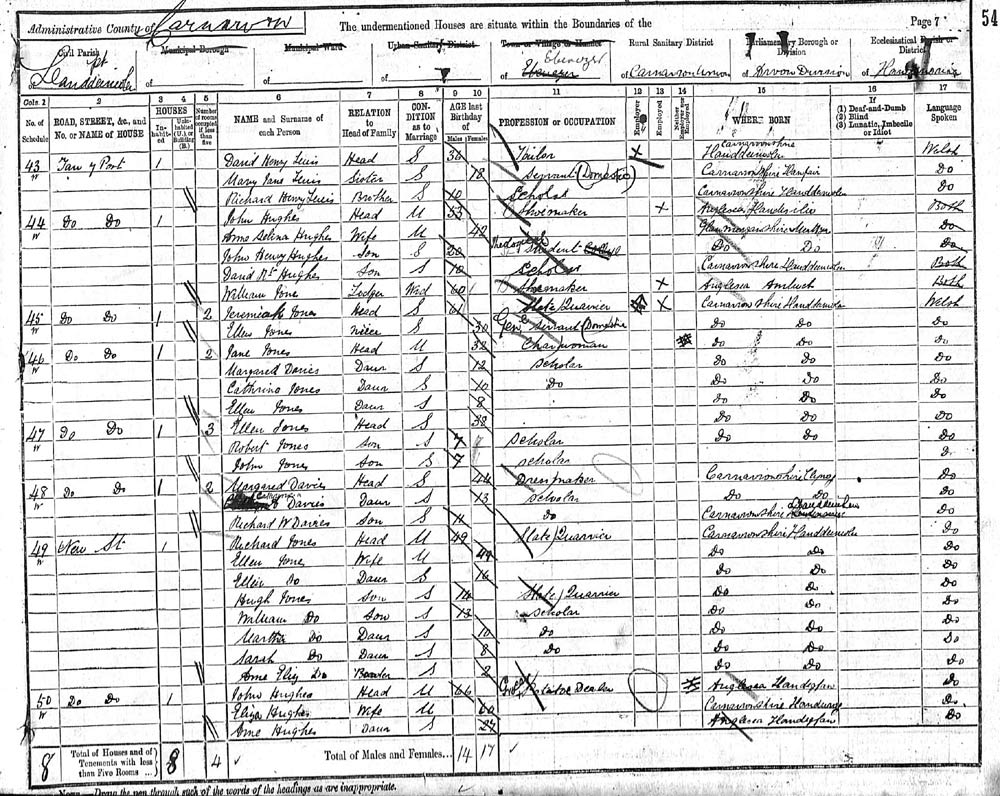 Administrative County of Carnarvon The undermentioned Houses are situate within the Boundaries of the Page 7 54
Civil Parish Municipal Borough Municipal Ward Urban Sanitary District Town or Village or Hamlet Rural Sanitary District Parliamentary Borough or Division Ecclesiastical Parish or District
pt Llanddeiniolen of of of Ebenezer Ebenezer of Carnarvon Union of Arvon Division of
Cols. 1 2 3 4 5 6 7 8 9 10 11 12 13 14 15 16 17
No. of Schedule ROAD, STREET, &c., and No. or NAME of HOUSE HOUSES Inhabited Uninhabited (U.) or Building (B.) Number of rooms occupied if less than five NAME and Surname of each Person RELATION to Head of Family CONDITION as to Marriage AGE last Birthday of Males Females PROFESSION or OCCUPATION Employer Employed Neither Employer nor Employed WHERE BORN If (1) Deaf-and-Dumb (2) Blind (3) Lunatic, Imbecile or Idiot Language Spoken
43 Tan y Port 1 David Henry Lewis Head S 36 Tailor X Carnarvonshire Llanddeiniolen Welsh
Mary Jane Lewis Sister S 18 Servant (Domestic) Carnarvonshire Llanfair Do
Richard Henry Lewis Brother S 10 Scholar Carnarvonshire Llanddeiniolen Do
44 Do Do 1 John Hughes Head M 53 Shoemaker X Anglesea Both
Anne Selina Hughes Wife M 42 Glamorganshire Merthyr Do
John Henry Hughes Son S 20 Theological Student Do Do Do
David Hughes Son S 10 Scholar Carnarvonshire Llanddeiniolen Both
William Jone Lodger Wid 60 Shoemaker X Anglesea Amlwch Both
45 Do Do 1 2 Jeremiah Jones Head S 61 Slate Quarrier X Carnarvonshire Llanddeiniolen Welsh
Ellen Jones Niece S 30 Genl Servant (Domestic Do Do Do
46 Do Do 1 2 Jane Jones Head M 32 Charwoman Do Do Do
Margared Davies Daur S 12 Scholar Do Do Do
Cathrine Jones Daur S 10 Do Do Do Do
Ellen Jones Daur S 8 Do Do Do
47 Do Do 1 3 Ellen Jones Head S 38 Do Do Do
Robert Jones Son S 7 Scholar Do Do Do
John Jones Son S 7 Scholar
48 Do Do 1 2 Margared Davies Head S 44 Dressmaker Carnarvonshire Do
Catherine Davies Daur S 13 Scholar Do Do Do
Richard W Davies Son S 11 Do Carnarvonshire Llanddeiniolen Do
49 New St 1 Richard Jones Head M 49 Slate Quarrier Carnarvonshire Llanddeiniolen Do
Ellen Jones Wife M 49 Do Do Do
Ellen Do Daur S 16 Do Do Do
Hugh Jones Son S 14 Slate Quarrier Do Do Do
William Do Son S 13 Scholar Do Do Do
Martha Do Daur S 10 Do Do Do Do
Sarah Do Daur S 8 Do Do Do Do
Anne Eliz Do S 2 Do Do Do
50 Do Do 1 John Hughes Head M 66 Potatoe Dealer Anglesea Do
Eliza Hughes Wife M 60 Carnarvonshire Llanwnda Do
Anne Hughes Daur S 27 Anglesea Do
8 Total of Houses and of Tenements with less than Five Rooms ... 8 4 Total of Males and Females... 14 17
Note.—Draw the pen through such of the words of the headings as are inappropriate.